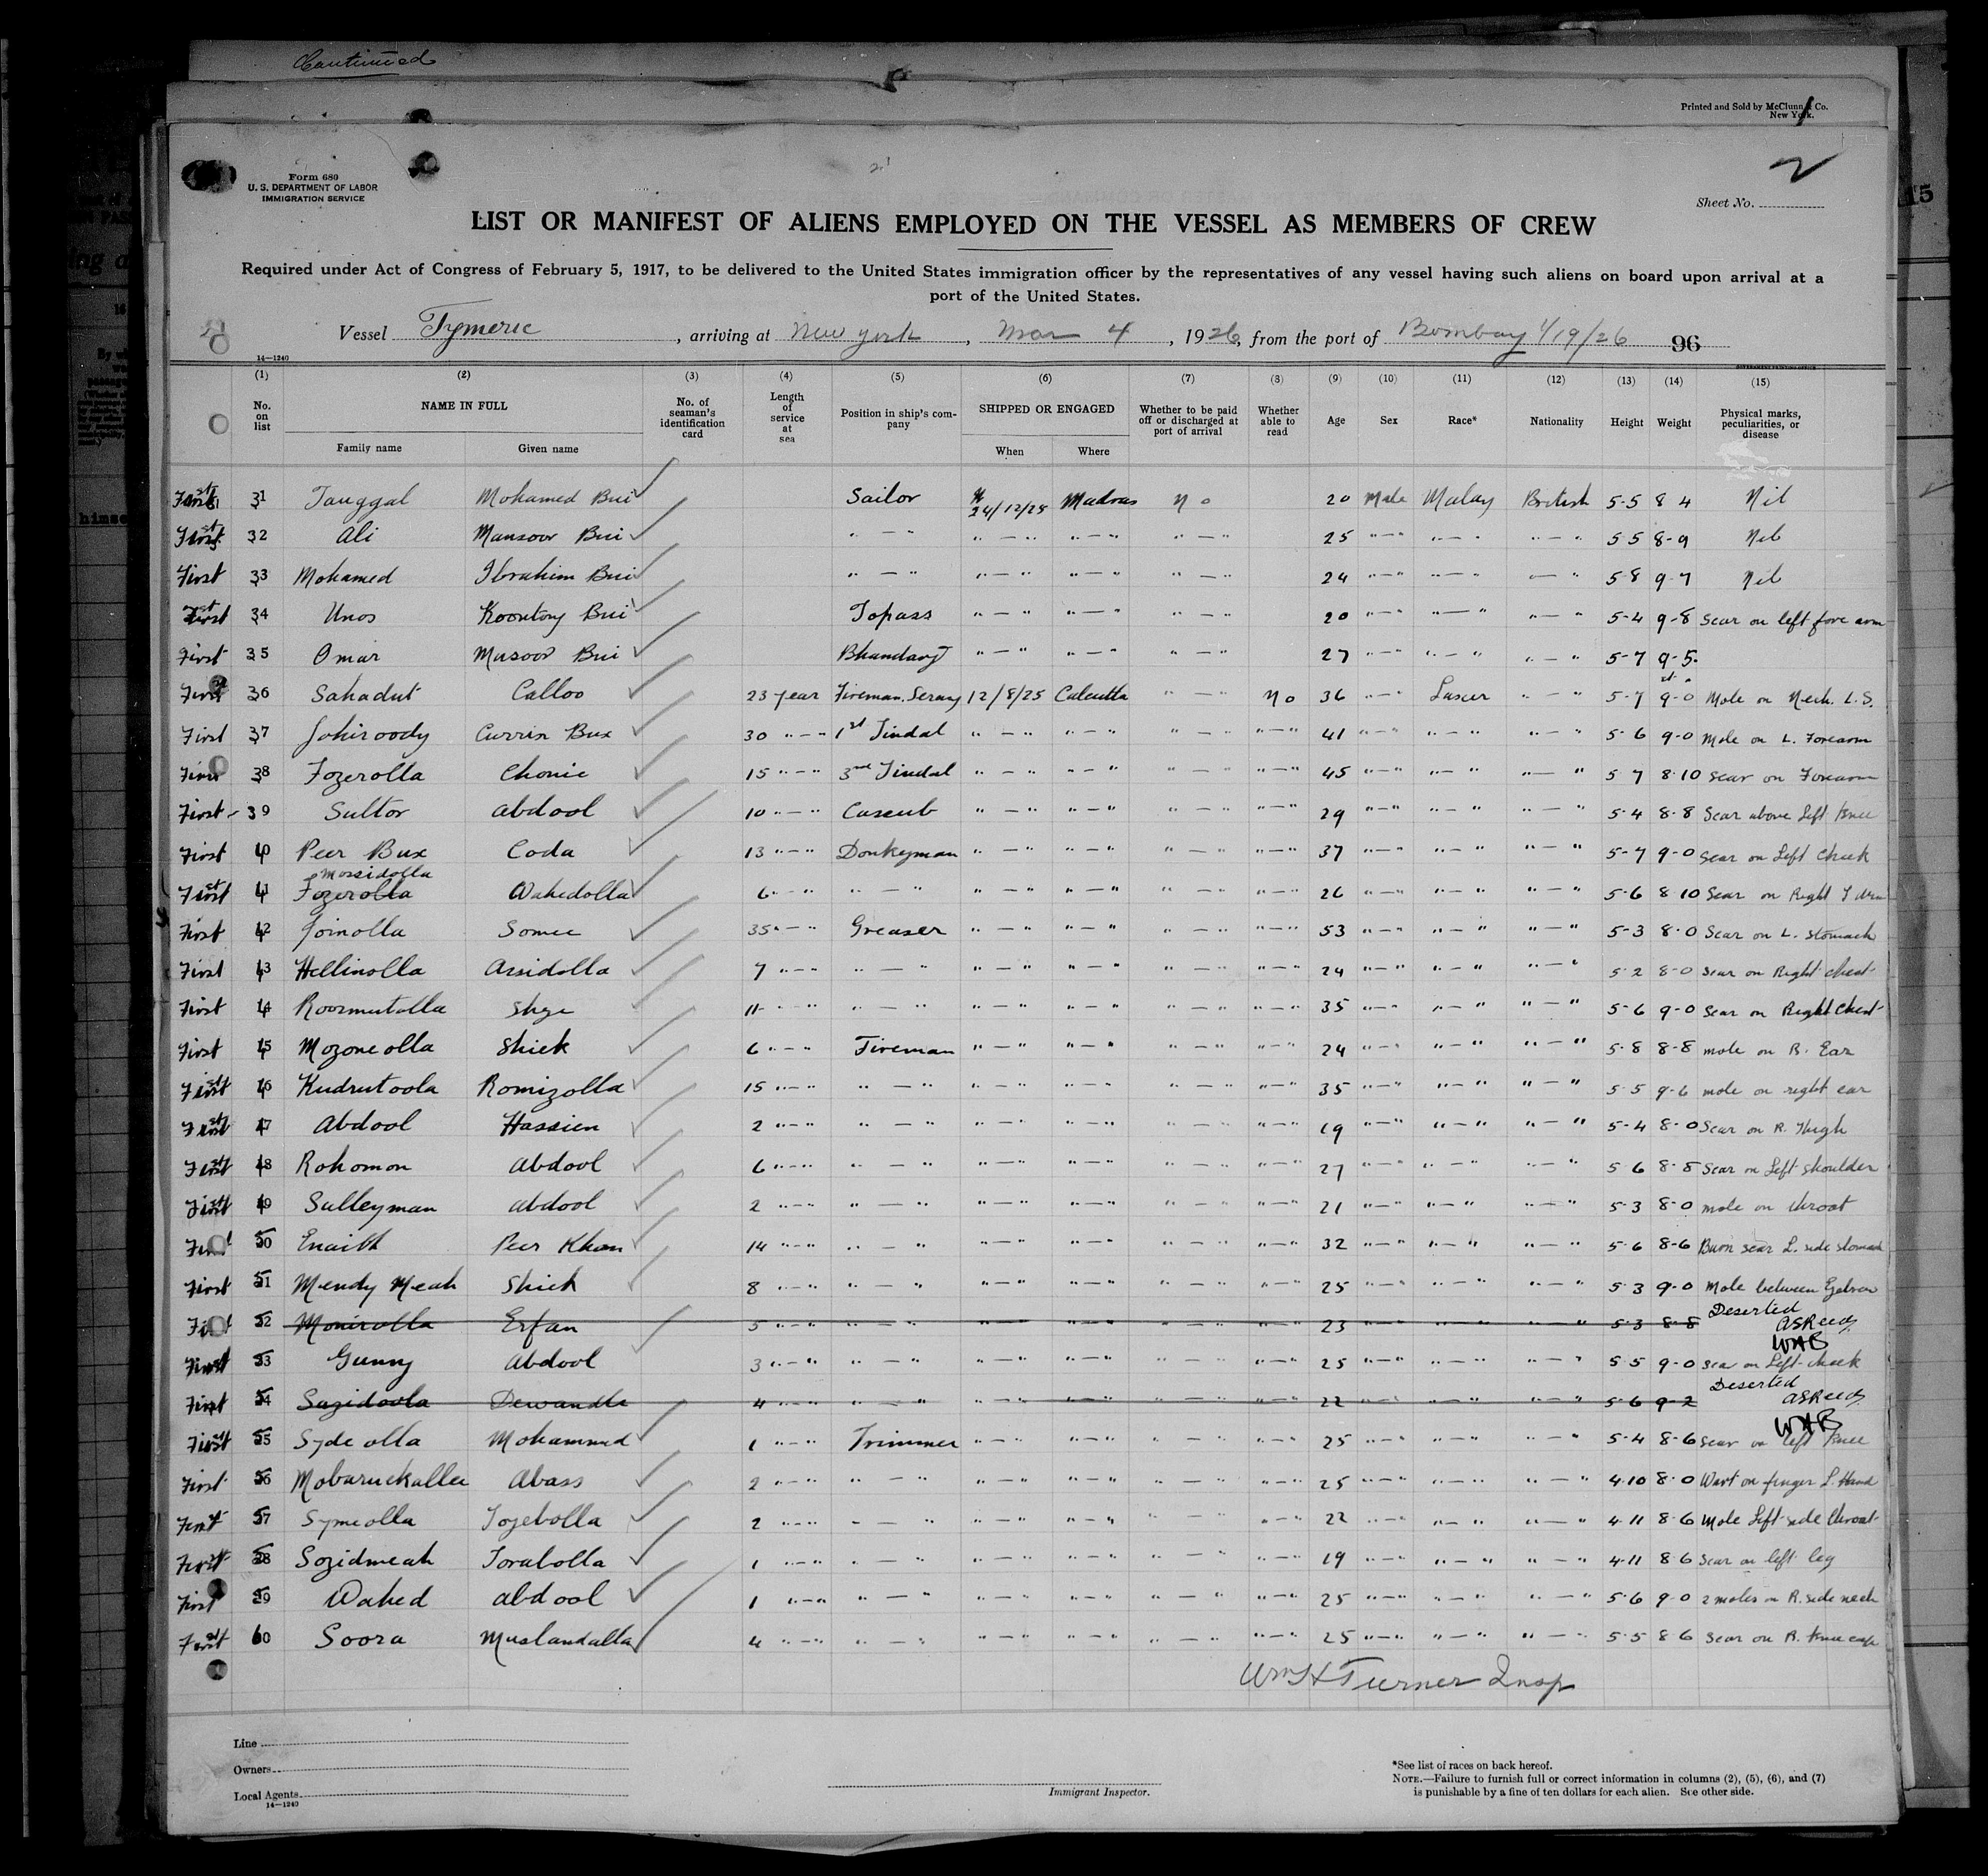 Continued
Printed and Sold by McClunn & Co.
New York.
2
Form 680
U. S. DEPARTMENT OF LABOR
IMMIGRATION SERVICE
Sheet No.
LIST OR MANIFEST OF ALIENS EMPLOYED ON THE VESSEL AS MEMBERS OF CREW
Required under Act of Congress of February 5, 1917, to be delivered to the United States immigration officer by the representatives of any vessel having such aliens on board upon arrival at a
port of the United States.
Vessel Tymeric, arriving at New York, Mar 4, 1926, from the port of Bombay 1/19/26 96
14—1240
(1) (2) (3) (4) (5) (6) (7) (8) (9) (10) (11) (12) (13) (14) (15)
No. on list NAME IN FULL Family name Given name No. of seaman's identification card Length of service at sea Position in ship's company SHIPPED OR ENGAGED When Where Whether to be paid off or discharged at port of arrival Whether able to read Age Sex Race* Nationality Height Weight Physical marks, peculiarities, or disease
First 31 Tanggal Mohamed Bui Sailor 24/12/25 Madras No 20 Male Malay British 5-5 8 4 Nil
First 32 Ali Mansoor Bui " — " " — " " — " " — " 25 " — " " — " " — " 5 5 8-9 Nil
First 33 Mohamed Ibrahim Bui " — " " — " " — " " — " 24 " — " " — " " — " 5-8 9-7 Nil
First 34 Unos Koontong Bui Topass " — " " — " " — " 20 " — " " — " " — " 5-4 9-8 Scar on left fore arm
First 35 Omar Masoor Bui Bhandary " — " " — " " — " 27 " — " " — " " — " 5-7 9-5
First 36 Sahadut Calloo 23 year Fireman Serang 12/8/25 Calcutta " — " No 36 " — " Lascar " — " 5-7 9-0 Mole on Neck. L.S.
First 37 Johiroody Currin Bux 30 " — " 1st Tindal " — " " — " " — " " — " 41 " — " " — " " — " 5-6 9-0 Mole on L. Forearm
First 38 Fozerolla Chonie 15 " — " 3nd Tindal " — " " — " " — " " — " 45 " — " " — " " — " 5 7 8.10 Scar on Forearm
First 39 Sultor Abdool 10 " — " Caseub " — " " — " " — " " — " 29 " — " " — " " — " 5-4 8-8 Scar above Left Knee
First 40 Peer Bux Coda 13 " — " Donkeyman " — " " — " " — " " — " 37 " — " " — " " — " 5-7 9-0 Scar on Left Cheek
Mossidolla
First 41 Fozerolla Wahedolla 6 " — " " — " " — " " — " " — " " — " 26 " — " " — " " — " 5-6 8 10 Scar on Right
First 42 Joinolla Somee 35 " — " Greaser " — " " — " " — " " — " 53 " — " " — " " — " 5-3 8-0 Scar on L. Stomach
First 43 Hellinolla Arsidolla 7 " — " " — " " — " " — " " — " " — " 24 " — " " — " " — " 5 2 8-0 Scar on Right chest
First 44 Roozmutolla Shge 11 " — " " — " " — " " — " " — " " — " 35 " — " " — " " — " 5-6 9-0 Scar on Right Chest
First 45 Mozoneolla Shiek 6 " — " Fireman " — " " — " " — " " — " 24 " — " " — " " — " 5-8 8-8 mole on R. Ear
First 46 Kudrutoola Romizolla 15 " — " " — " " — " " — " " — " " — " 35 " — " " — " " — " 5 5 9-6 mole on right ear
First 47 Abdool Hassien 2 " — " " — " " — " " — " " — " " — " 19 " — " " — " " — " 5-4 8-0 Scar on R. Thigh
First 48 Rohomon Abdool 6 " — " " — " " — " " — " " — " " — " 27 " — " " — " " — " 5 6 8-8 Scar on Left shoulder
First 49 Sulleyman Abdool 2 " — " " — " " — " " — " " — " " — " 21 " — " " — " " — " 5-3 8-0 mole on throat
First 50 Enaith Peer Khan 14 " — " " — " " — " " — " " — " " — " 32 " — " " — " " — " 5-6 8-6 Burn scar L. side stomach
First 51 Mendy Meah Shiek 8 " — " " — " " — " " — " " — " " — " 25 " — " " — " " — " 5 3 9-0 Mole between Eyebrow
First 52 Monirolla Erfan 5 " — " " — " " — " " — " " — " " — " 23 " — " " — " " — " 5-3 8-8 Deserted
WAB
First 53 Gunny Abdool 3 " — " " — " " — " " — " " — " " — " 25 " — " " — " " — " 5 5 9-0 Scar on Left cheek
First 54 Sazidoola Dewandla 4 " — " " — " " — " " — " " — " " — " 22 " — " " — " " — " 5-6 9-2 Deserted
WAB
First 55 Syde olla Mohammed 1 " — " Trimmer " — " " — " " — " " — " 25 " — " " — " " — " 5-4 8-6 Scar on left Knee
First 56 Mobaruckallee Abass 2 " — " " — " " — " " — " " — " " — " 25 " — " " — " " — " 4-10 8-0 Wart on finger L. Hand
First 57 Symeolla Tozebolla 2 " — " " — " " — " " — " " — " " — " 22 " — " " — " " — " 4-11 8-6 Mole Left side throat
First 58 Sozidmeah Torabolla 1 " — " " — " " — " " — " " — " " — " 19 " — " " — " " — " 4-11 8 6 Scar on left leg
First 59 Wahed Abdool 1 " — " " — " " — " " — " " — " " — " 25 " — " " — " " — " 5-6 9-0 2 moles on R. side neck
First 60 Soora Muslandalla 4 " — " " — " " — " " — " " — " " — " 25 " — " " — " " — " 5-5 8 6 Scar on R. Knee cap
Wm H Turner Insp
Line
Owners
Local Agents
14—1240
Immigrant Inspector.
*See list of races on back hereof.
NOTE.—Failure to furnish full or correct information in columns (2), (5), (6), and (7)
is punishable by a fine of ten dollars for each alien. See other side.